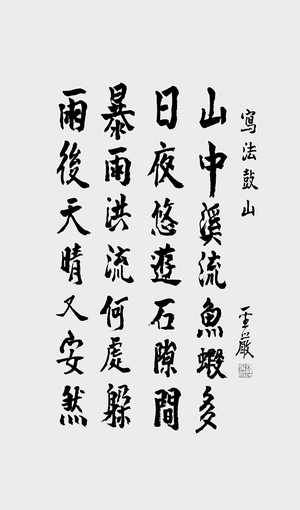 寫法鼓山
山中溪流魚蝦多
日夜悠遊石隙間
暴雨洪流何處躲
雨後天晴又安然